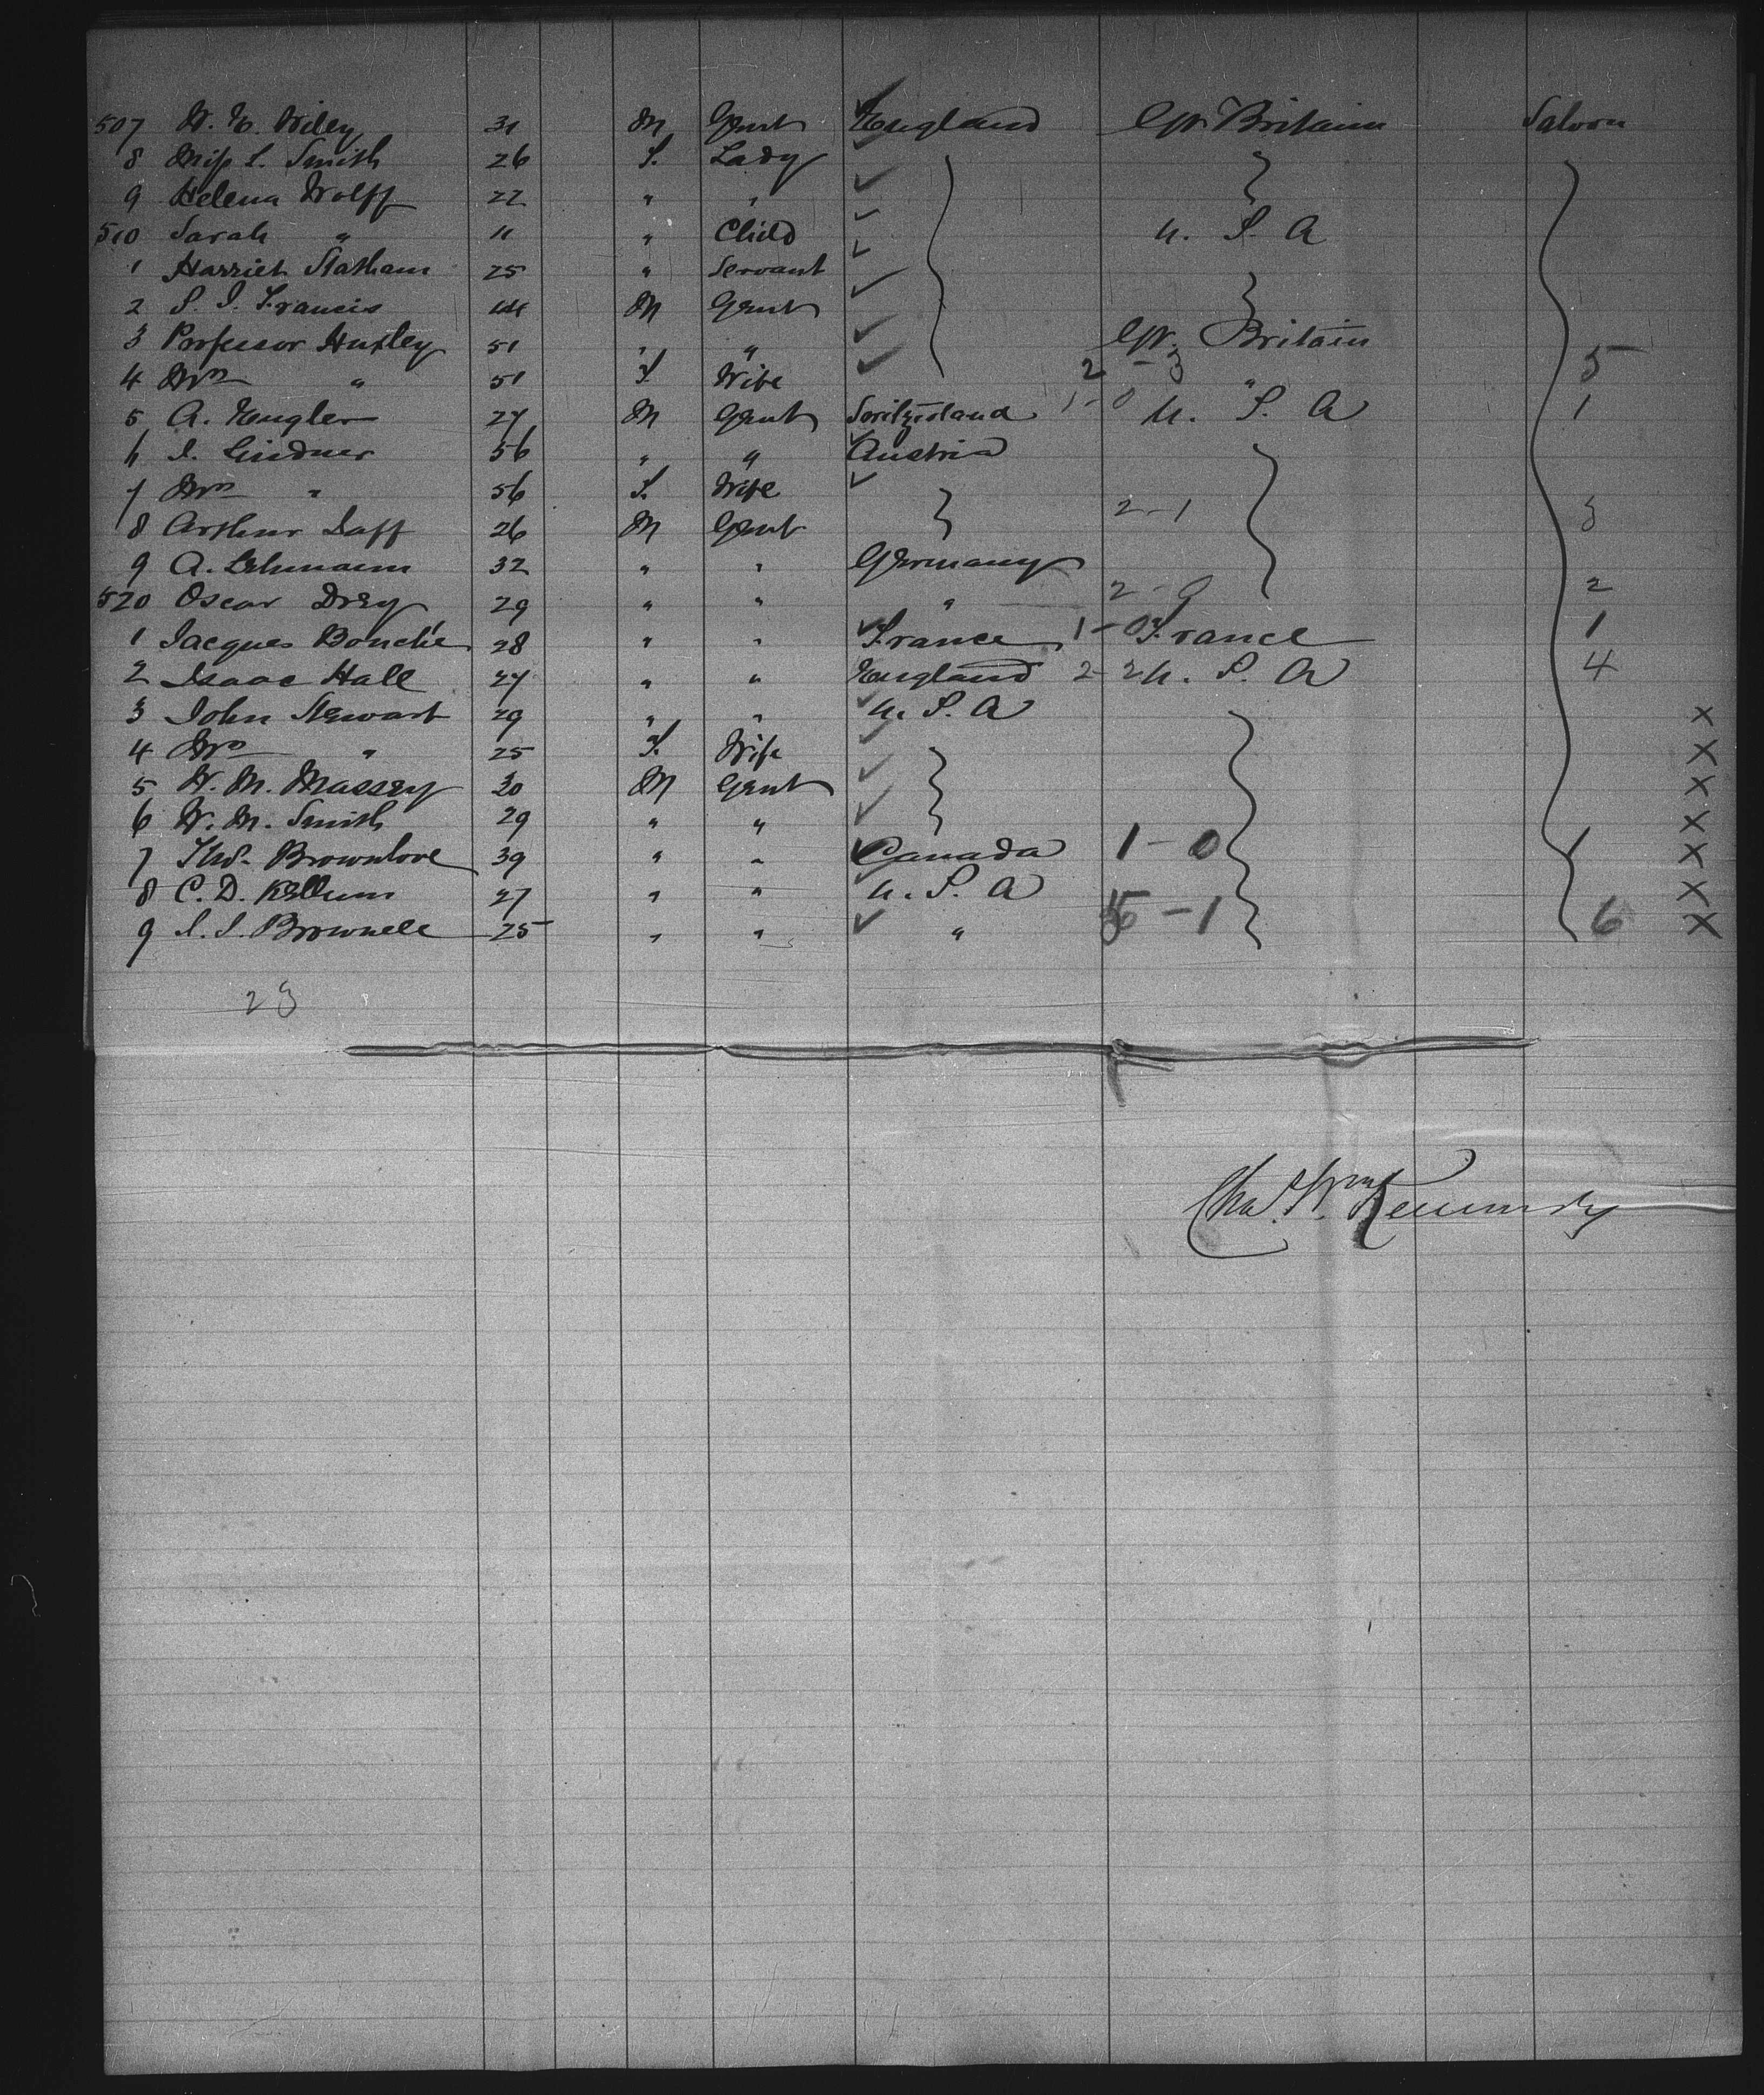 507 W. E. Wiley 31 M Gent England Gr. Britain Saloon
8 Miss L. Smith 26 F. Lady
9 Helena Wolff 22 " "
510 Sarah " 11 " Child U. S. A
1 Harriet Statham 25 " Servant
2 S. I. Francis 44 M Gent
3 Professor Huxley 51 " " Gr. Britain
4 Mrs " 51 F. Wife 2-3 " 5
5 A. Engler 27 M Gent Switzerland 1-0 U. S. A 1
6 I. Lindner 56 " " Austria
7 Mrs " 56 F. Wife
8 Arthur Daff 26 M Gent 2-1 3
9 A. Lehmann 32 " " Germany
520 Oscar Drey 29 " " " 2-0 2
1 Jacques Bouché 28 " " France 1-0 France 1
2 Isaac Hall 27 " " England 2-2 U. S. A 4
3 John Stewart 29 " " U. S. A x
4 Mrs " 25 F. Wife x
5 W. M. Massey 30 M Gent x
6 W. M. Smith 29 " " x
7 Thos. Brownlove 39 " " Canada 1-0 1 x
8 C. D. Kellum 27 " " U. S. A x
9 I. I. Brownell 25 " " " 5-1 6 x
23
Chas. Wm Kennedy